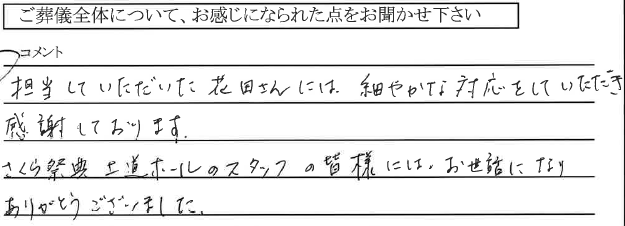 ご葬儀全体について、お感じになられた点をお聞かせ下さい
コメント
担当していただいた花田さんには、細やかな対応をしていただき
感謝しております。
さくら祭典 上道ホールのスタッフの皆様には、お世話になり
ありがとうございました。